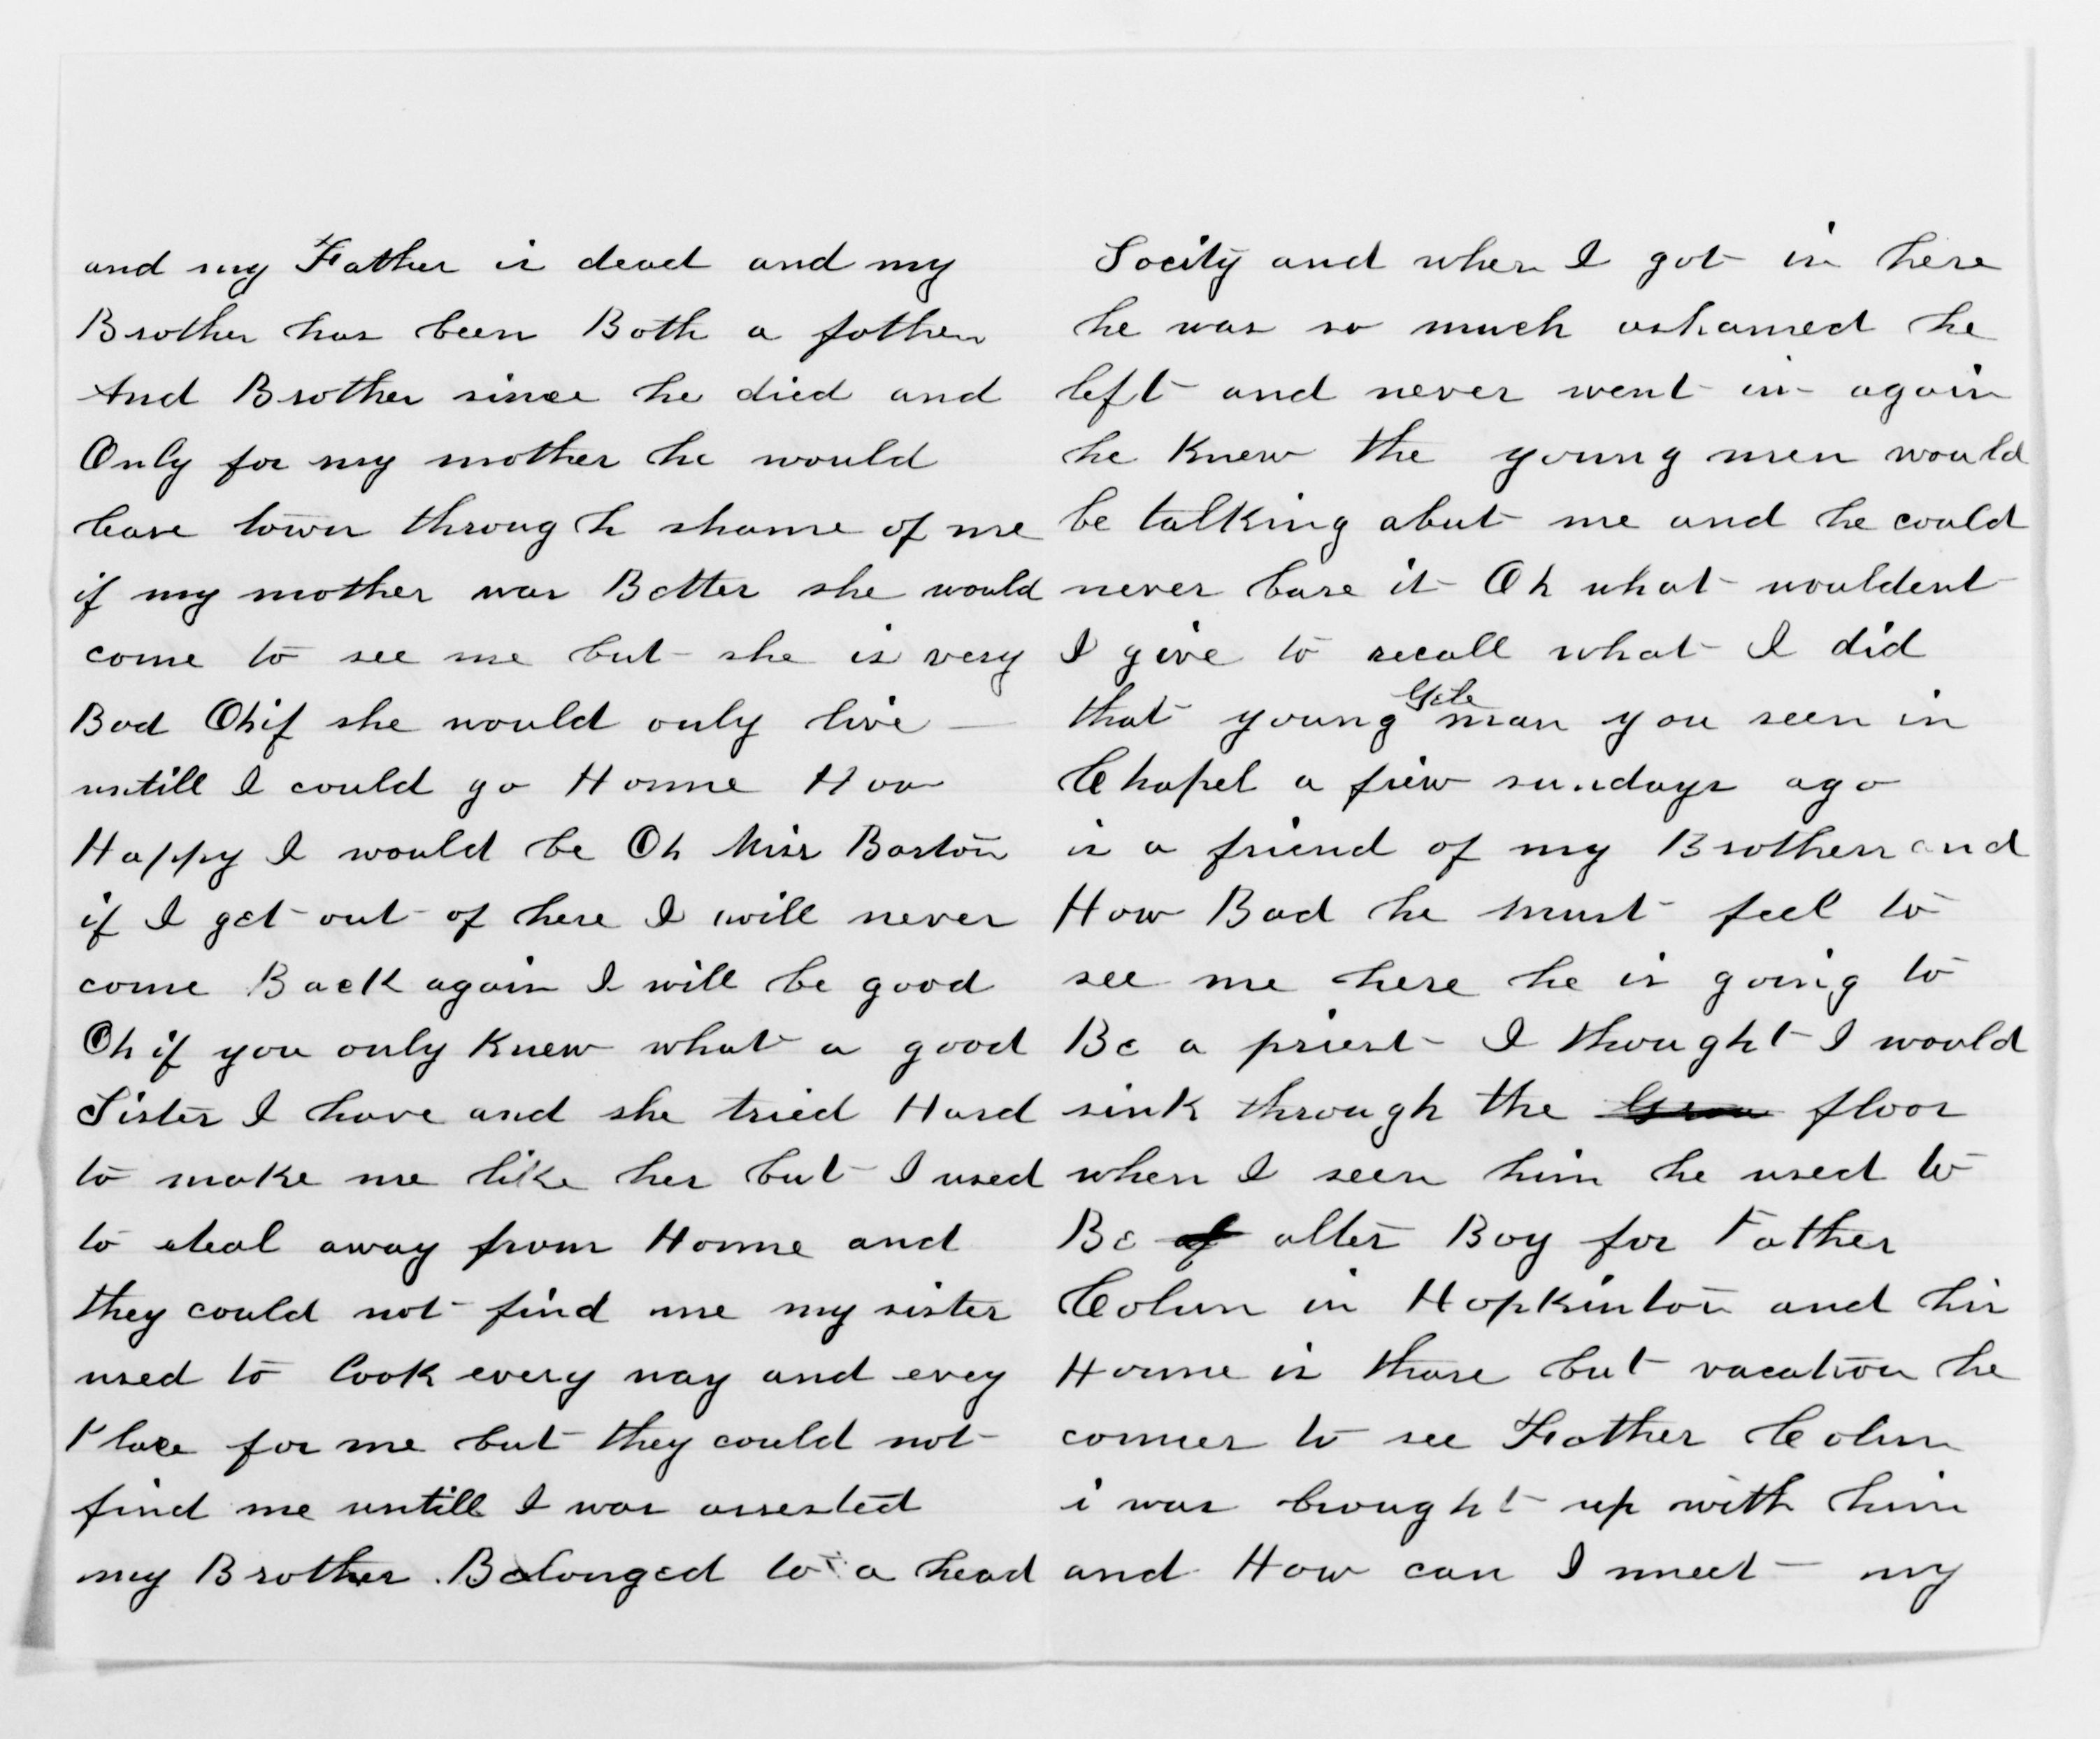 and my Father is dead and my
Brother has been Both a father
And Brother since he died and
Only for my mother he would
leave town through shame of me
if my mother was Better she would
come to see me but she is very
Bad Oh if she would only live —
untill I could go Home How
Happy I would be Oh Miss Barton
if I get out of here I will never
come Back again I will be good
Oh if you only Knew what a good
Sister I have and she tried Hard
to make me like her but I used
to steal away from Home and
they could not find me my sister
used to look every way and evey
Place for me but they could not
find me untill I was arrested
my Brother Belonged to a head
Socity and when I got in here
he was so much ashamed he
left and never went in again
he Knew the young men would
be talking abut me and he could
never bare it Oh what wouldent
I give to recall what I did
that young man you seen in
Chapel a fiew sundays ago
is a friend of my Brothers and
How Bad he must feel to
see me here he is going to
Be a priest I thought I would
sink through the floor
when I seen him he used to
Be alter Boy for Father
in Hopkinton and his
Home is thare but vacation he
comes to see Father
i was brought up with him
and How can I meet — my